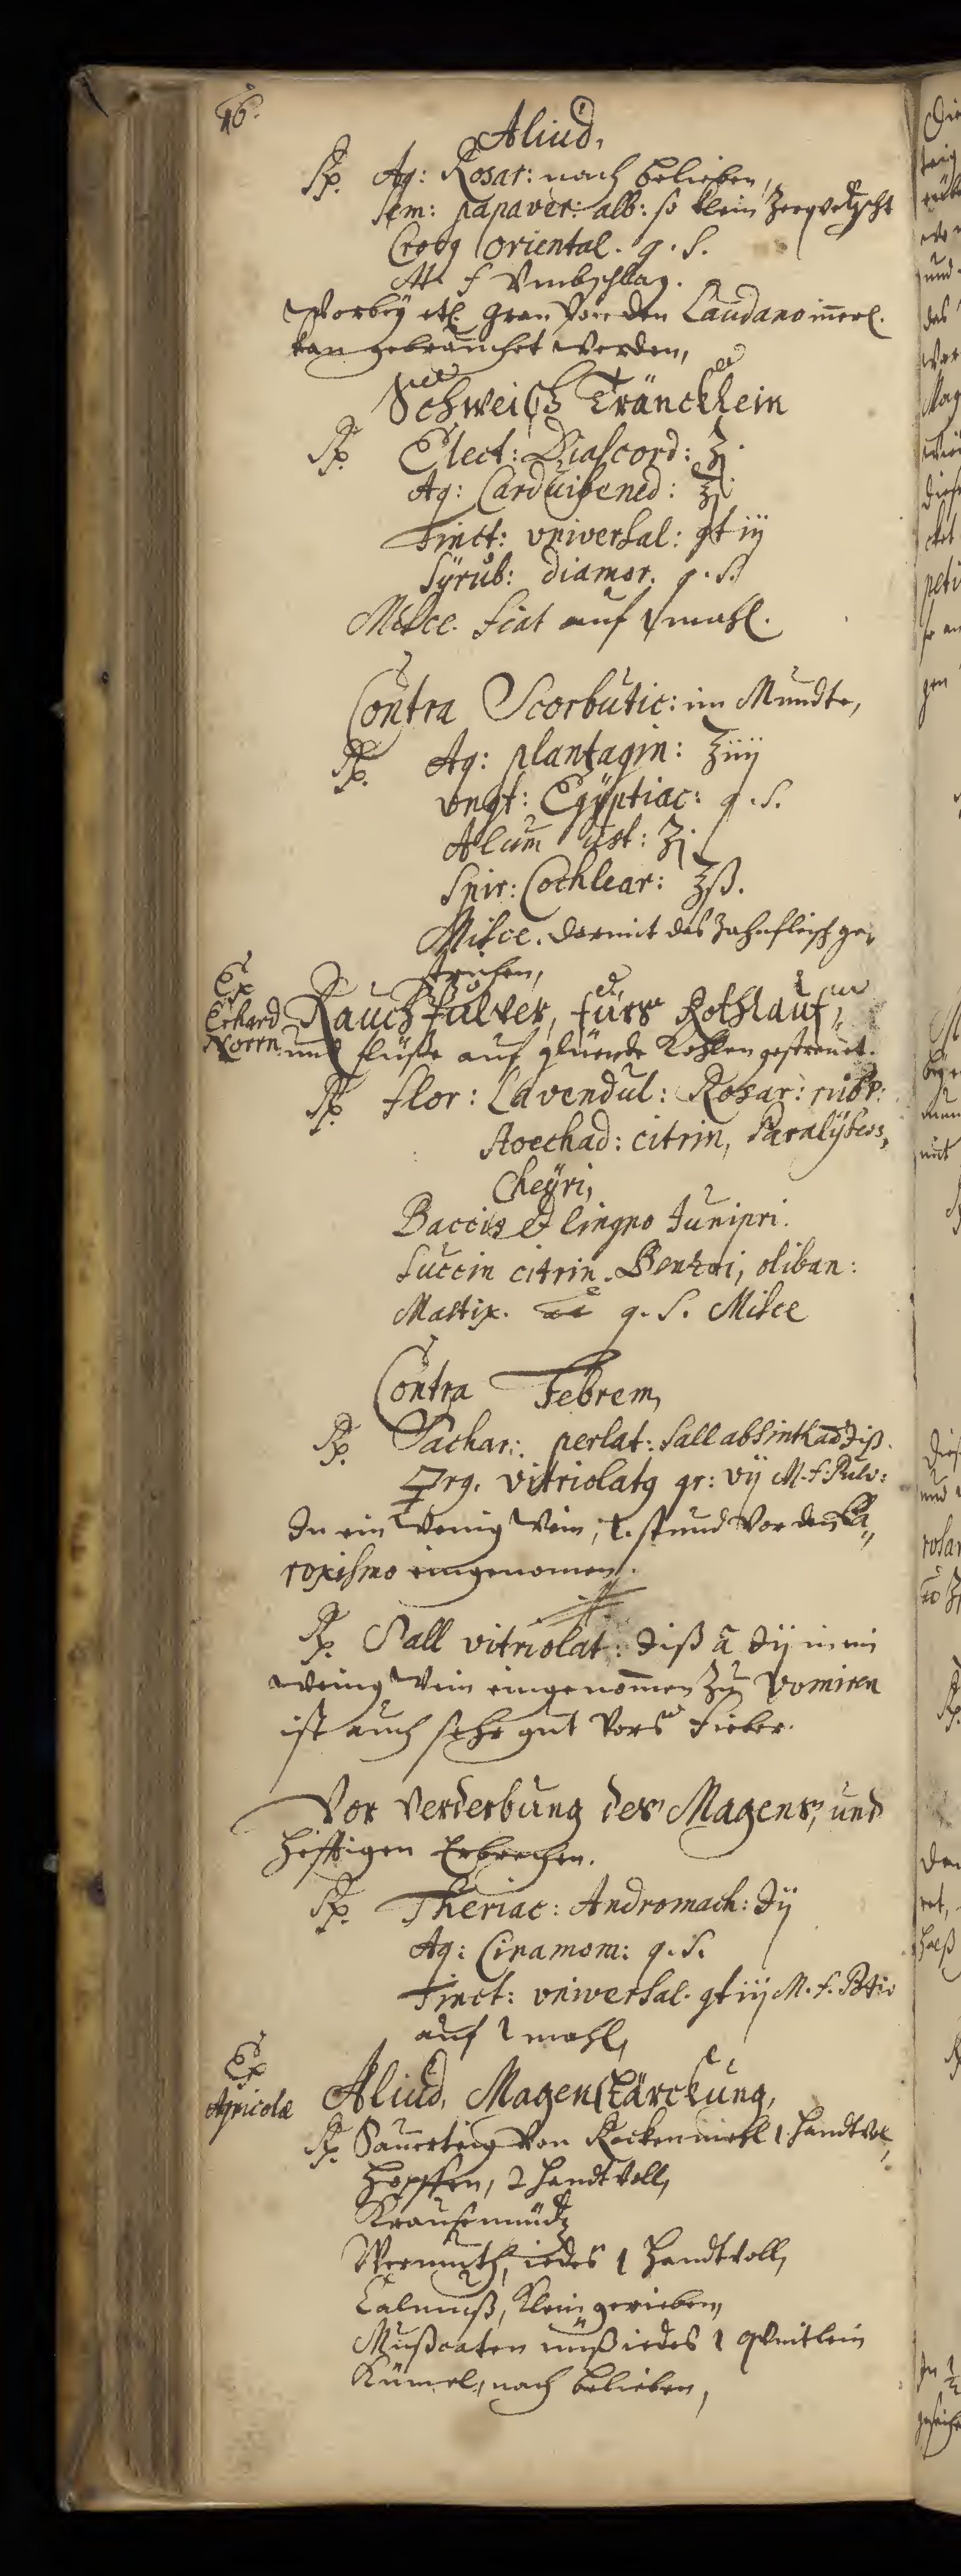 46.
Aliud,
Rp. Aq: Rosar: nach belieben,
Sem: papaver: alb: so klein Zerqvetzscht
Croci oriental. q. S.
M f Umbschlag.
Worbey etl. Gran von den Laudano
kan gebrauchet werden,
Schweiß Träncklein
Rp. Elect: Diascord: ʒj
Aq: Cardui bened:
Tinct: universal: gt iij
Sÿrub: diamor. q. s.
Misce. fiat auf 1 mahl.
Contra Scorbutic: im Mundte,
Rp. Aq: plantagin: ℥iiij
Ungt: Egÿptiac: q. S.
Alum ust: ʒj
Spir: Cochlear: ʒß.
Misce. darmit das Zahnfleisch ge-
strichen,
Ex
Erhard
Norrn
Rauch Pulver, fürs Rothlauf,
und flüße auf glüende Kohlen gestreuet.
Rp. flor: Lavendul: Rosar: rubr:
Stoechad: citrin, Paralÿseos,
Cheÿri,
Baccis et lingno Junipri.
Succin citrin. Benzoi, oliban:
Mastix. aa q. S. Misce
Contra Febrem,
Rp. Sachar: perlat: Sall absinth aa ℈iß.
vitriolat gr: vij M. f. Pulv:
In ein wenig Wein, 1. stund vor den Pa,,
roxismo eingenomen.
Rp. Sall vitriolat: ℈iß a ℈ij in ein
wenig Wein eingenommen Zu vomiren
ist auch sehr gut vors Fieber.
Vor Verderbung des Magens, und
hefftigen Erbrechen.
Rp. Theriac: Andromach: ℈ij
Aq: Cinamom: q. S.
Tinct: universal. gt iij M. f. Potio
auf 1 mahl,
Ex
Agricolæ
Aliud, Magenstärckung,
Rp. Sauerteig von Rockenmehl 1. Handtvol,
Hopffen, 2 Handtvoll,
Krausemüntz
Wermuth, iedes 1 Handtvoll,
Calmuß, klein gerieben,
Mußcaten nuß iedes 1 qventlein
Kümel, nach belieben,